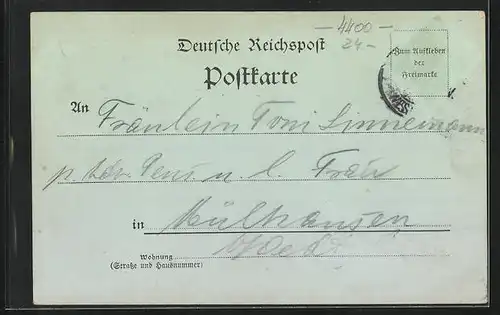 – 4400 –
24 –
Deutsche Reichspost
Postkarte
Zum Aufkleben
der
Freimarke
An Fräulein Toni Linnemann
p. Adr. Pens u. l. Frau
in Mülhausen
Wohnung
(Straße und Hausnummer)